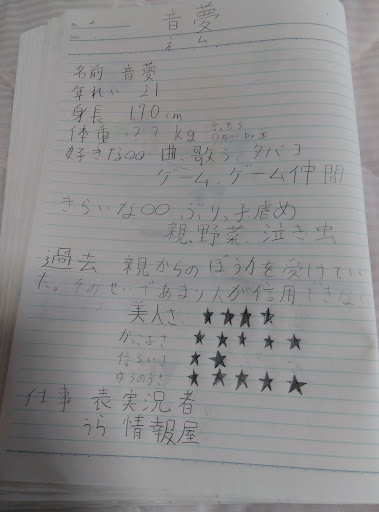 音夢
ネム
名前 音夢
年れい 21
身長 170cm
体重 ?? kg
好きな○○ 曲、歌う、タバコ
ゲーム、ゲーム仲間
きらいな○○ ぶりっ子虐め
親、野菜、泣き虫
過去 親からのぼう力を受けてい
た。そのせいであまり人が信用できない
美人さ ★★★★
かっこよさ ★★★★★
★★
ゆうのうさ ★★★★★
仕事 表 実況者
うら 情報屋